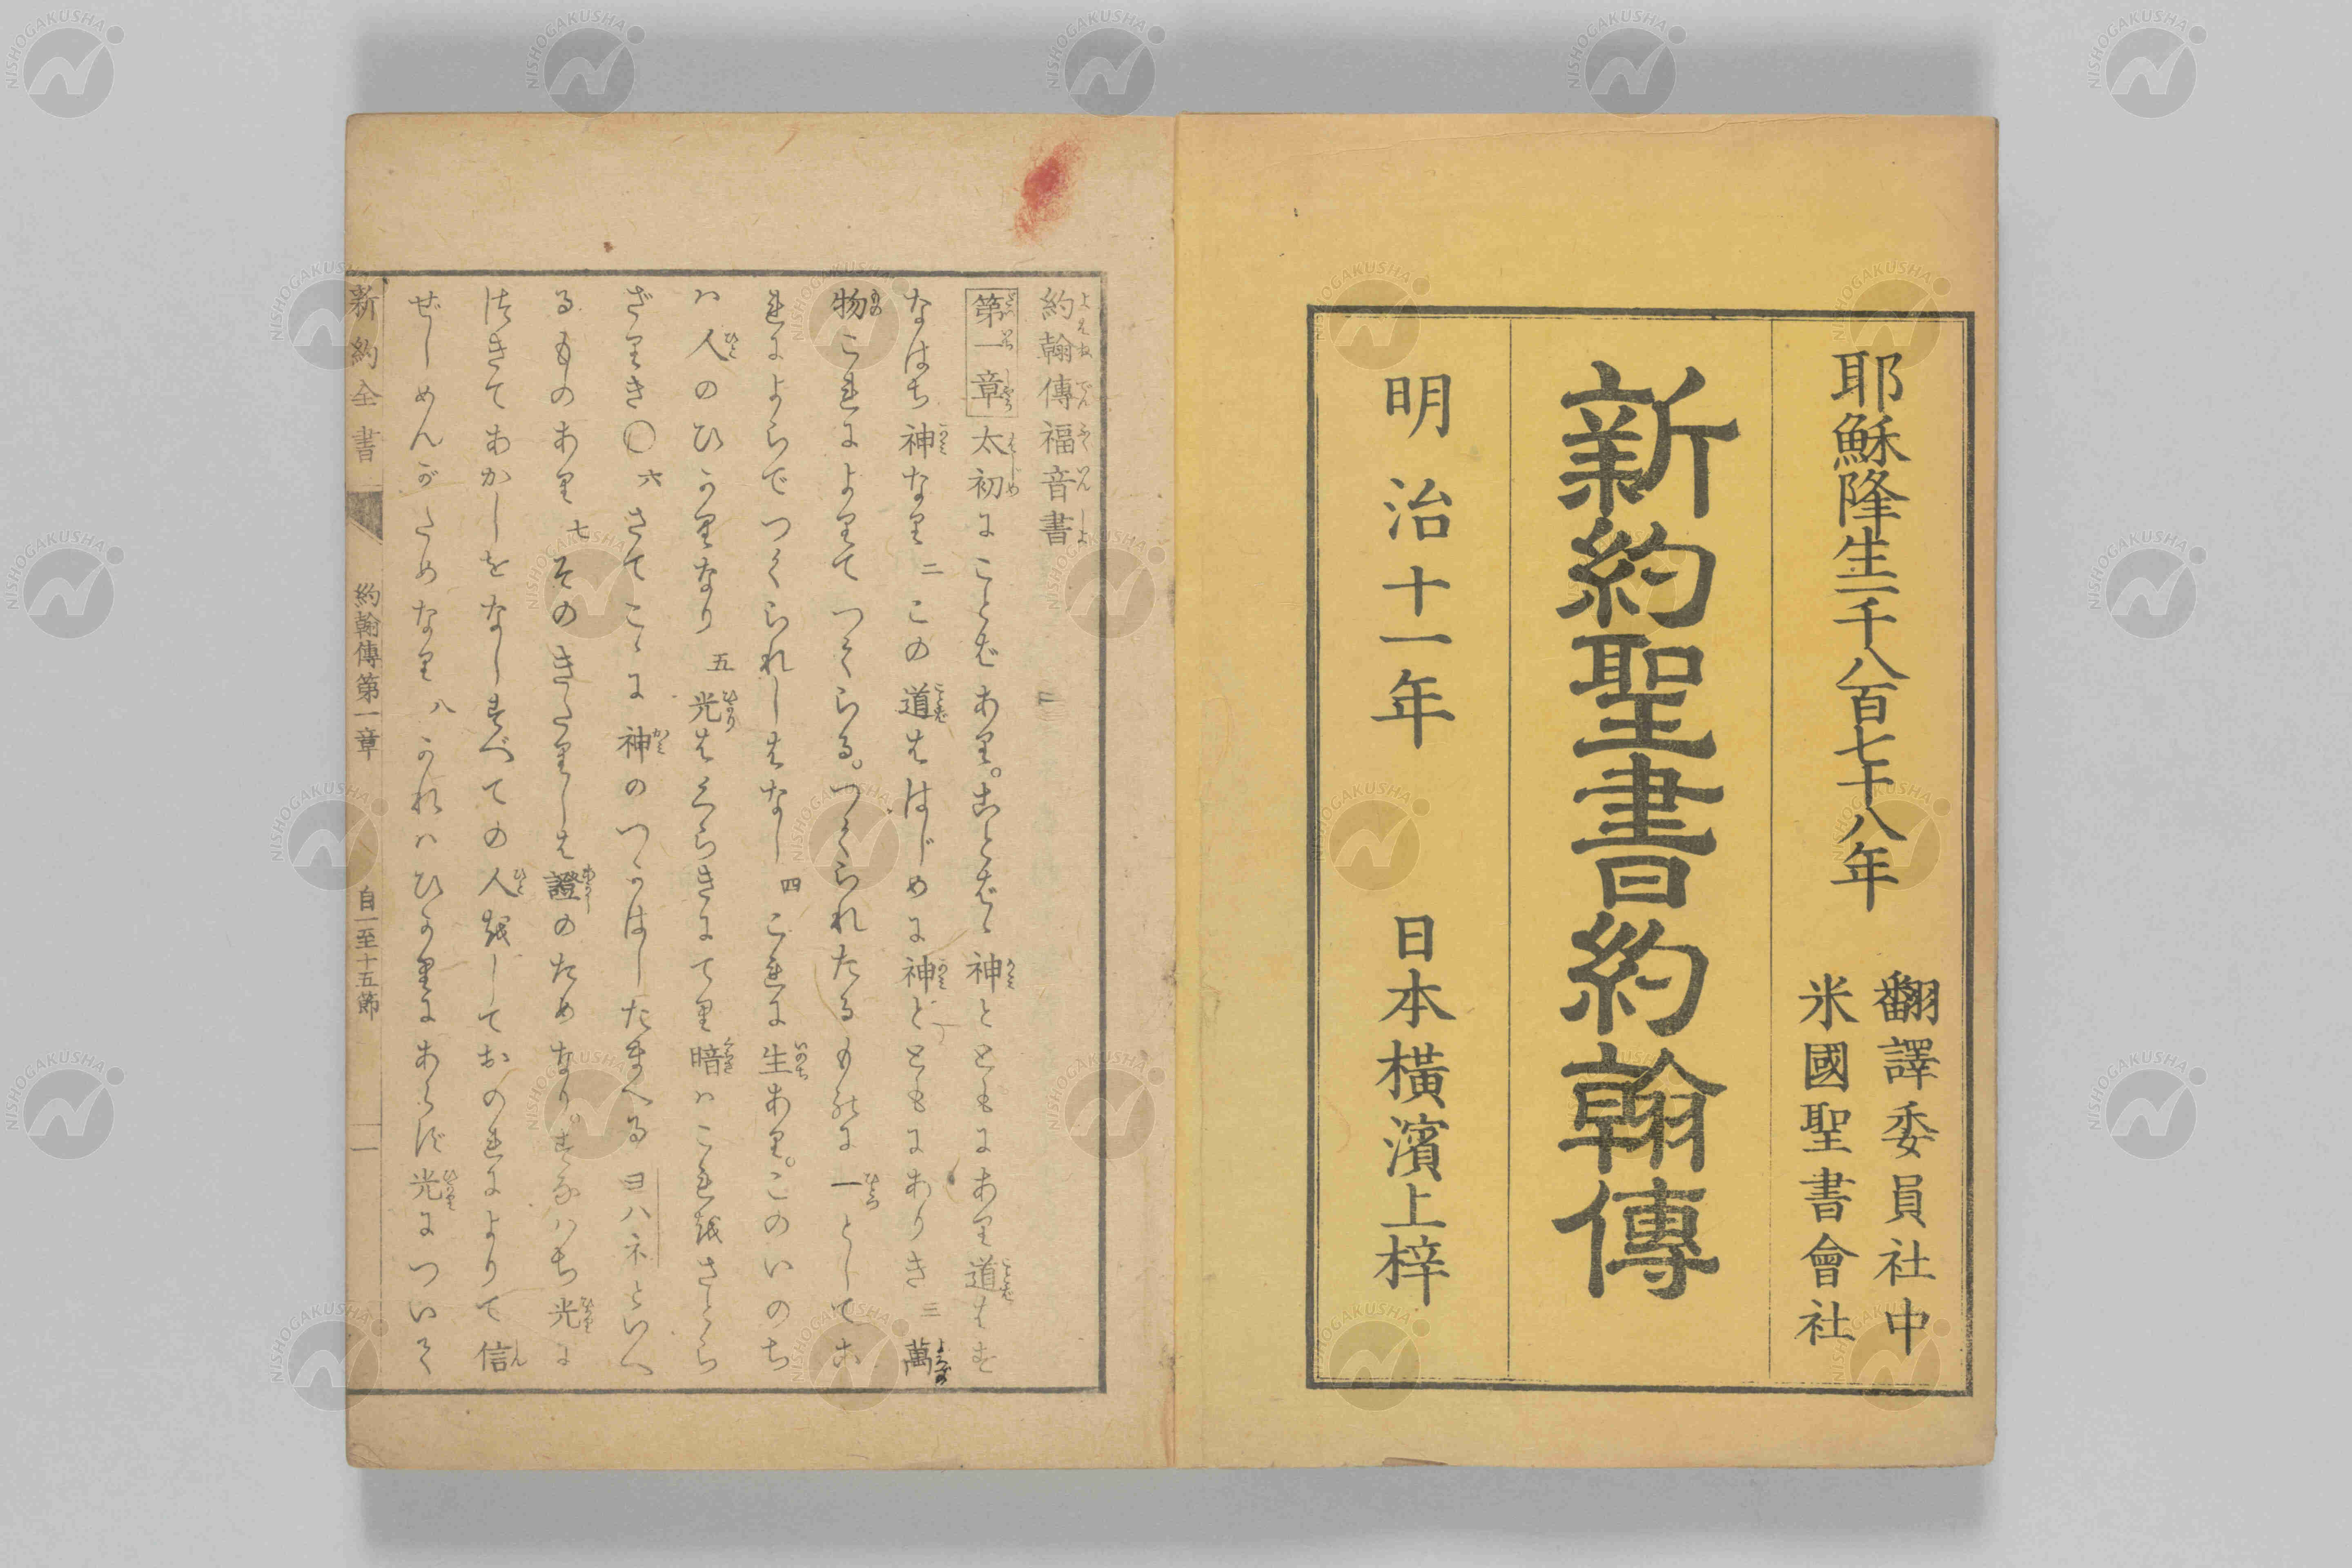 耶穌降生一千八百七十八年
翻譯委員社中
米國聖書會社
新約聖書約翰傳
明治十一年 日本橫濱上梓
約翰傳福音書
第一章 太初にことばあり。ことばゝ神とともにあり道はす
なはち神なり 二 この道ははじめに神とともにありき 三 萬
物これによりてつくらる。つくられたるものに一としてこ
れによらでつくられしはなし 四 これに生あり。このいのち
ハ人のひかりなり 五 光はくらきにてり暗ハこれをさとら
ざりき〇 六 さてこゝに神のつかはしたまへるヨハネといへ
るものあり 七 そのきたりしは證のためなり。すなハち光に
つきてあかしをなしすべての人をしておのれによりて信
ぜしめんがためなり 八 かれハひかりにあらず光について
新約全書 約翰傳第一章 自一至十五節 一
NISHOGAKUSHA